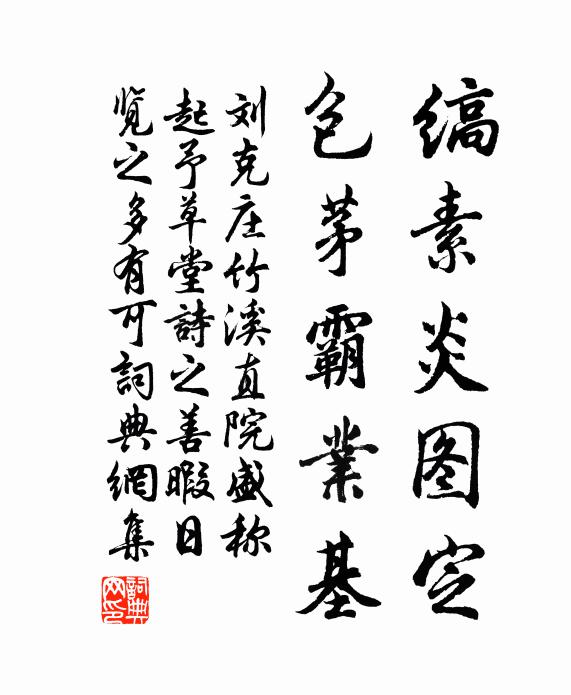 缟素炎图定
包茅霸業基
刘克庄竹溪直院盛称
起予草堂詩之善暇日
览之多有可詞典網集
詞典网印